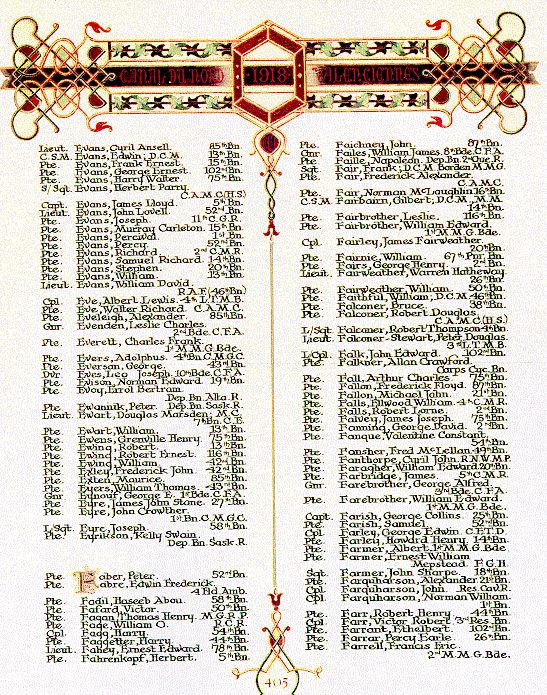 CANAL DU NORD 1918 VALENCIENNES
Lieut. Evans, Cyril Ansell. 85th Bn.
C.S.M. Evans, Edwin; D.C.M. 13th Bn.
Pte. Evans, Frank Ernest. 15th Bn.
Pte. Evans, George Ernest. 102nd Bn.
Pte. Evans, Harry Walter. 75th Bn.
S/Sgt Evans, Herbert Parry.
C.A.M.C.(H.S.)
Capt. Evans, James Lloyd. 5th Bn.
Lieut. Evans, John Lovell. 52nd Bn.
Pte. Evans, Joseph. 11th C.G.R.
Pte. Evans, Murray Carleton. 15th Bn.
Pte. Evans, Percival. 1st Bn.
Pte. Evans, Percy. 52nd Bn.
Pte. Evans, Richard. 2nd C.M.R.
Pte. Evans, Samuel Richard. 14th Bn.
Pte. Evans, Stephen. 20th Bn.
Pte. Evans, William. 13th Bn.
Lieut. Evans, William David.
R.A.F. (46th Bn.)
Cpl. Eve, Albert Lewis. 4th L.T.M.B.
Pte. Eve, Walter Richard. C.A.M.C.
Pte. Eveleigh, Alexander. 85th Bn.
Gnr. Evenden, Leslie Charles.
2nd Bde. C.F.A.
Pte. Everett, Charles Frank.
1st M.M.G. Bde.
Pte. Evers, Adolphus. 4th Bn. C.M.G.C.
Pte. Everson, George. 43rd Bn.
Dvr. Eves, Leo Joseph. 10th Bde. C.F.A.
Pte. Evison, Norman Edward. 19th Bn.
Pte. Evoy, Errol Bertram.
Dep. Bn. Alta. R.
Pte. Ewannik, Peter. Dep. Bn. Sask. R.
Lieut. Ewart, Douglas Marsden; M.C.
7th Bn. C.E.
Pte. Ewart, William. 13th Bn.
Pte. Ewens, Grenville Henry. 75th Bn.
Pte. Ewing, Robert. 13th Bn.
Pte. Ewing, Robert Ernest. 116th Bn.
Pte. Ewing, William. 42nd Bn.
Pte. Exley, Frederick John. 42nd Bn.
Pte. Exten, Maurice. 85th Bn.
Pte. Eyers, William Thomas. 43rd Bn.
Gnr. Eynouf, George E. 1st Bde. C.F.A.
Pte. Eyre, James John Stone. 27th Bn.
Pte. Eyre, John Crowther.
1st Bn. C.M.G.C.
L/Sgt. Eyre, Joseph. 58th Bn.
Pte. Eyrikson, Kelly Swain.
Dep. Bn. Sask. R.
Pte. Faber, Peter. 52nd Bn.
Pte. Fabre, Edwin Frederick.
4 Fld. Amb.
Pte. Fadil, Haseeb Abou. 58th Bn.
Pte. Fafard, Victor. 50th Bn.
Pte. Fagan, Thomas Henry. M.G.R.P.
Pte. Fage, William O. R.C.R.
Cpl. Fagg, Harry. 54th Bn.
Pte. Faggetter, Harry. 44th Bn.
Lieut. Fahey, Ernest Edward. 78th Bn.
Pte. Fahrenkopf, Herbert. 5th Bn.
Pte. Faichney, John. 87th Bn.
Gnr. Failes, William James. 8th Bde. C.F.A.
Pte. Faille, Napoleon. Dep. Bn. 2nd Que. R.
Sgt. Fair, Frank; D.C.M. Borden M.M.G.
Pte. Fair, Frederick Alexander.
C.A.M.C.
Pte. Fair, Norman McLoughlin. 16th Bn.
C.S.M. Fairbairn, Gilbert; D.C.M., M.M.
14th Bn.
Pte. Fairbrother, Leslie. 116th Bn.
Pte. Fairbrother, William Edward.
1st M.M.G. Bde.
Cpl. Fairley, James Fairweather.
20th Bn.
Pte. Fairnie, William. 67th Pnr. Bn.
Pte. Fairs, George Henry. 2nd Bn.
Lieut. Fairweather, Warren Hatheway.
26th Bn.
Pte. Fairweather, William. 50th Bn.
Pte. Faithful, William; D.C.M. 46th Bn.
Pte. Falconer, Bruce. 38th Bn.
Pte. Falconer, Robert Douglas.
C.A.M.C.(H.S.)
L/Sgt. Falconer, Robert Thompson. 4th Bn.
Lieut. Falconer-Stewart, Peter Douglas.
3rd L.T.M.B.
L/Cpl. Falk, John Edward. 102nd Bn.
Pte. Falkner, Allan Crawford.
Corps Cyc. Bn.
Pte. Fall, Arthur Charles. 75th Bn.
Pte. Fallon, Frederick Floyd. 87th Bn.
Pte. Fallon, Michael John. 21st Bn.
Pte. Falls, Ellwood William. 4th C.M.R.
Pte. Falls, Robert Lorne. 2nd Bn.
Pte. Falvey, James Joseph. 75th Bn.
Pte. Fanning, George David. 2nd Bn.
Pte. Fanque, Valentine Constant.
54th Bn.
Pte. Fansher, Fred McLellan. 49th Bn.
Pte. Fanthorpe, Cyril John. R.N.W.M.P.
Pte. Faragher, William Edward. 20th Bn.
Pte. Farbridge, James. 5th C.M.R.
Gnr. Farebrother, George Alfred.
3rd Bde. C.F.A.
Pte. Farebrother, William Edward.
1st M.M.G. Bde.
Capt. Farish, George Collins. 25th Bn.
Pte. Farish, Samuel. 52nd Bn.
Cpl. Farley, George Edwin. C.E.T.D.
Pte. Farley, Howard Henry. 14th Bn.
Pte. Farmer, Albert. 1st M.M.G. Bde.
Pte. Farmer, Ernest William
Mepstead. F.G.H.
Sgt. Farmer, John Sharpe. 18th Bn.
Pte. Farquharson, Alexander. 21st Bn.
Cpl. Farquharson, John. Res. Cav. R.
Cpl. Farquharson, Norman William.
1st Bn.
Pte. Farr, Robert Henry. 44th Bn.
Cpl. Farr, Victor Robert. 3rd Res. Bn.
Pte. Farrant, Ethelbert. 102nd Bn.
Pte. Farrar, Percy Earle. 26th Bn.
Pte. Farrell, Francis Eric.
2nd M.M.G. Bde.
405